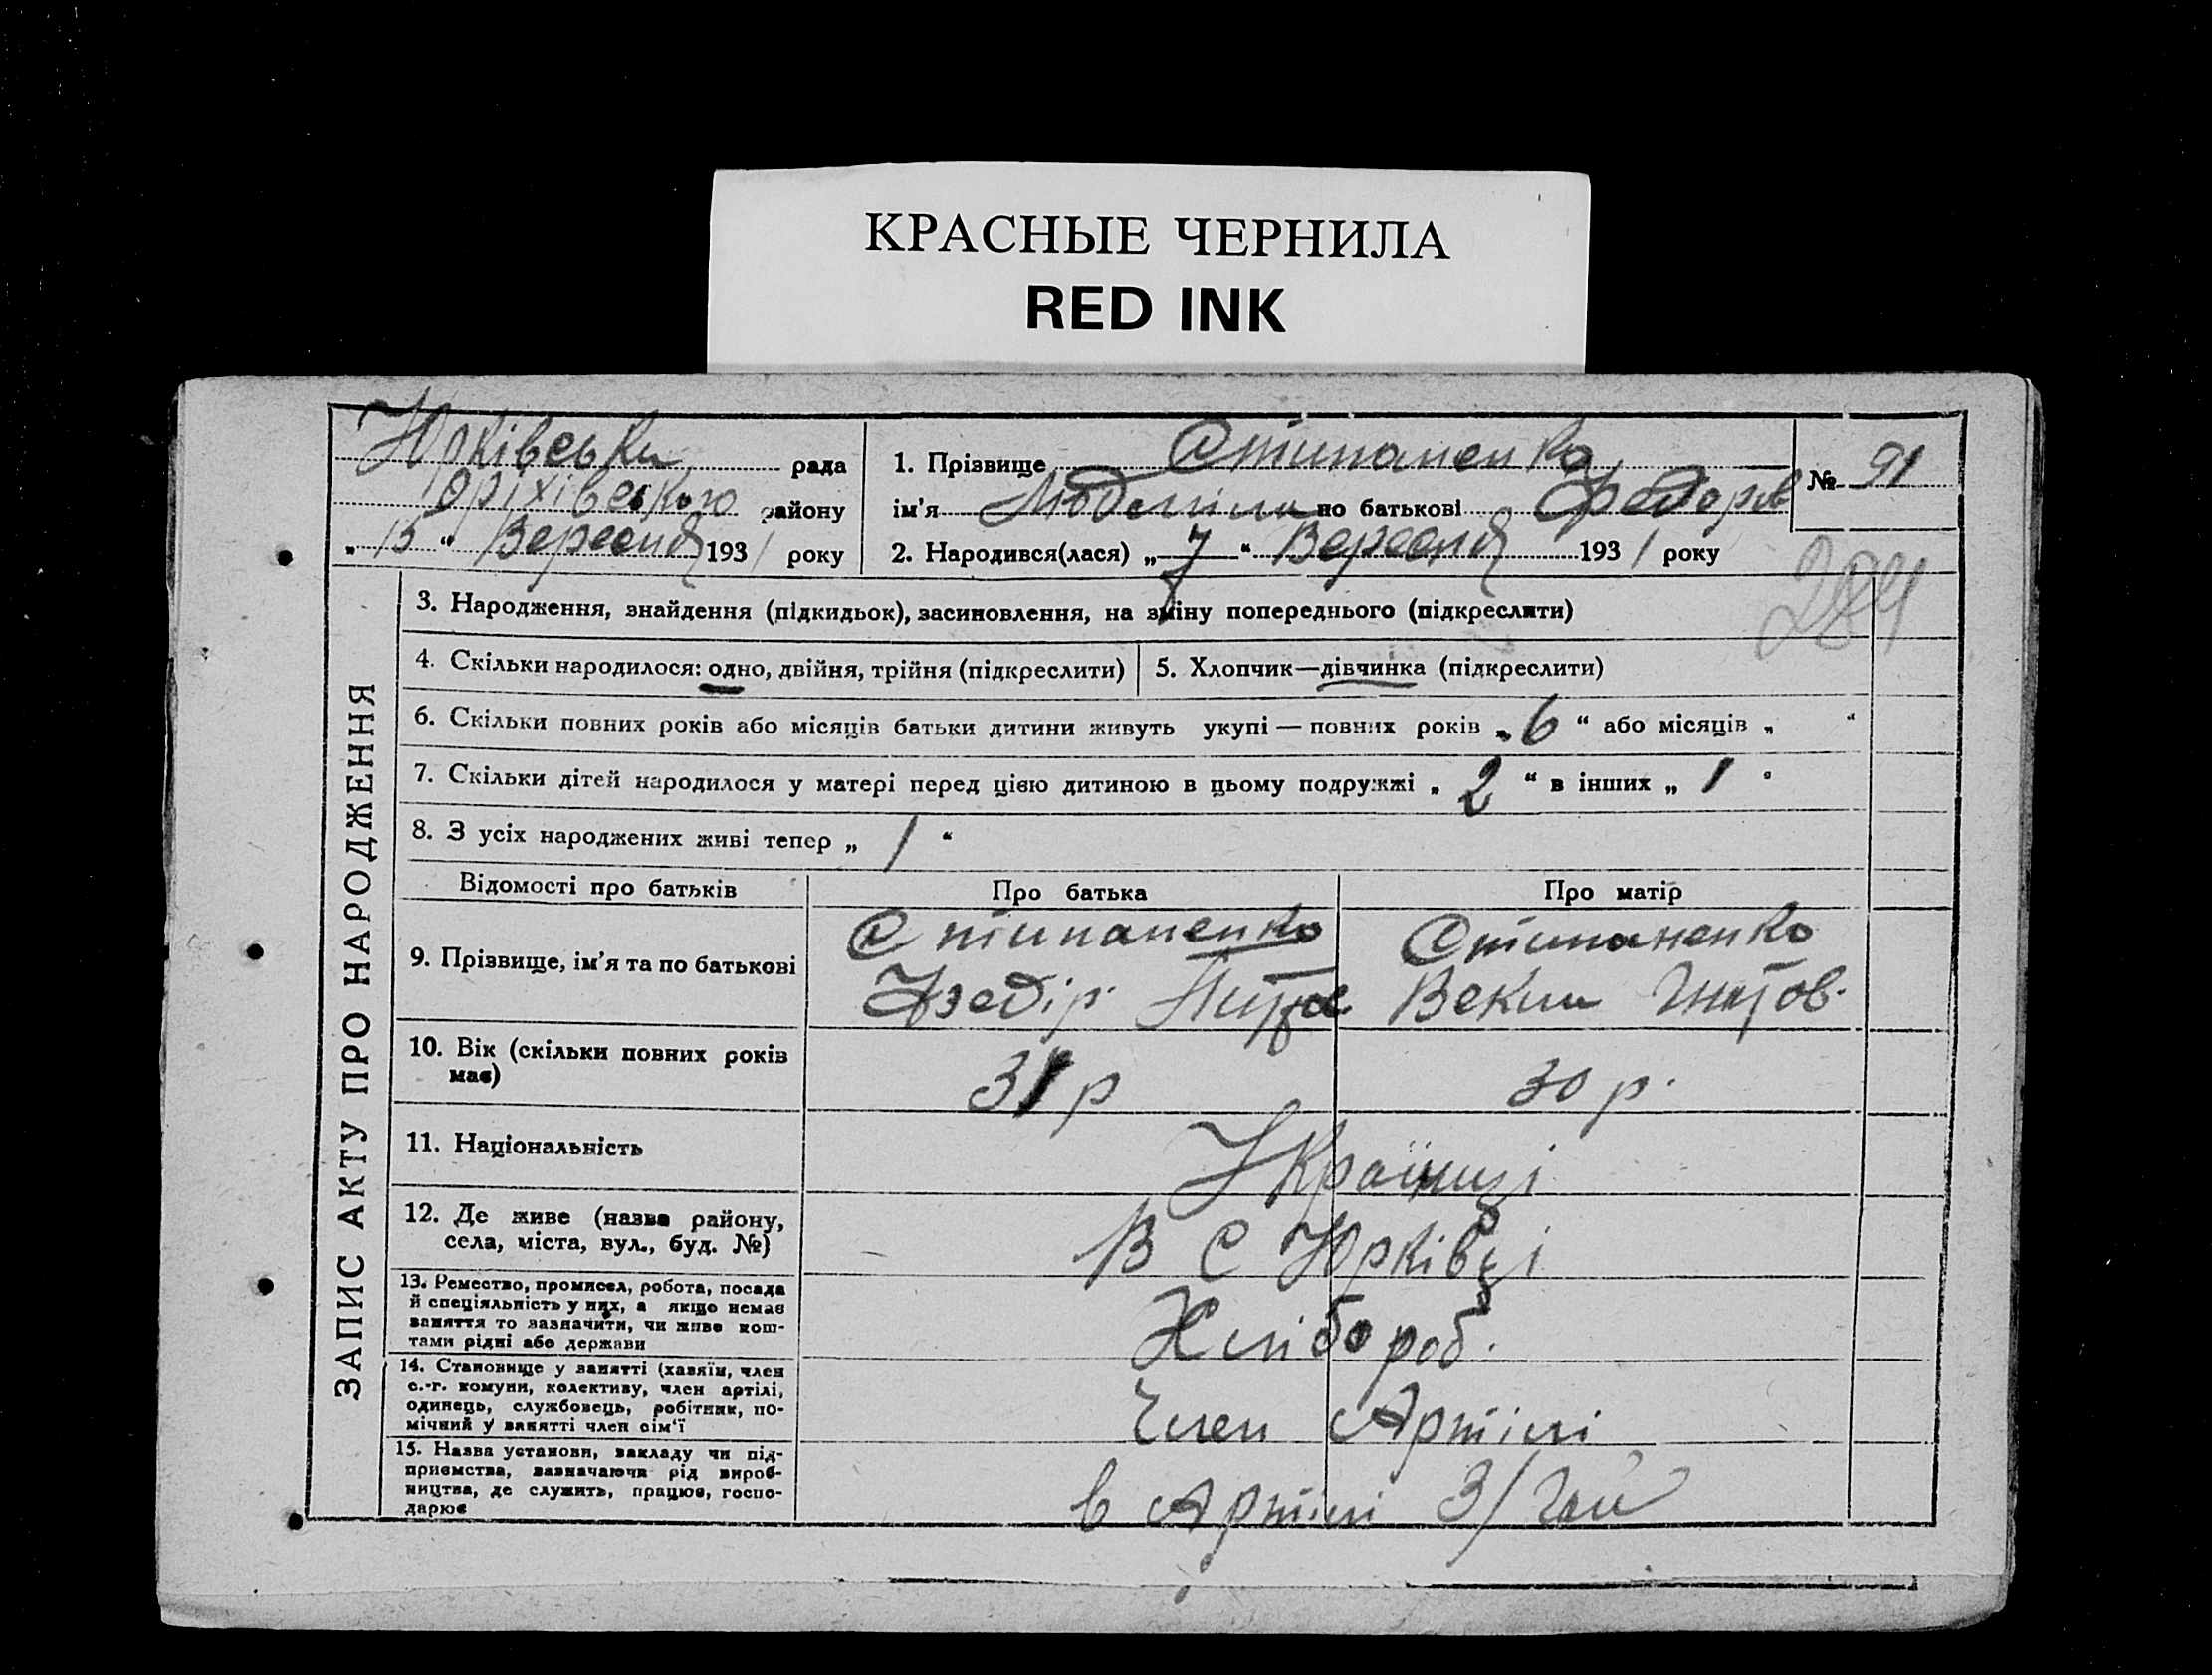 КРАСНЫЕ ЧЕРНИЛА
RED INK
Юрківська рада
Оріхівського району
„ 15 “ Вересня 1931 року
1. Прізвище Стипаненко
ім'я Людміла по батькові Федоров
№ 91
2. Народився(лася) „ 7 “ Вересня 1931 року
284
ЗАПИС АКТУ ПРО НАРОДЖЕННЯ
3. Народження, знайдення (підкидьок), засиновлення, на зміну попереднього (підкреслити)
4. Скільки народилося: одно, двійня, трійня (підкреслити)
5. Хлопчик—дівчинка (підкреслити)
6. Скільки повних років або місяців батьки дитини живуть укупі — повних років „ 6 “ або місяців „ “
7. Скільки дітей народилося у матері перед цією дитиною в цьому подружжі „ 2 “ в інших „ 1 “
8. З усіх народжених живі тепер „ 1 “
Відомості про батьків
Про батька
Про матір
9. Прізвище, ім'я та по батькові
Стипаненко
Хведір
Стипаненко
Векли Гнатов.
10. Вік (скільки повних років
має)
31 р
30 р.
11. Національність
Українці
12. Де живе (назва району,
села, міста, вул., буд. №)
В С Юрківці
13. Ремество, промисел, робота, посада
й спеціяльність у них, а якщо немає
заняття то зазначити, чи живе кош-
тами рідні або держави
Хлібороб.
14. Становище у занятті (хазяїн, член
с.-г. комуни, колективу, член артілі,
одинець, службовець, робітник, по-
мічний у занятті член сім'ї
Член Артілі
15. Назва установи, закладу чи під-
приємства, зазначаючи рід вироб-
ництва, де служить, працює, госпо-
дарює
в Артілі 3/